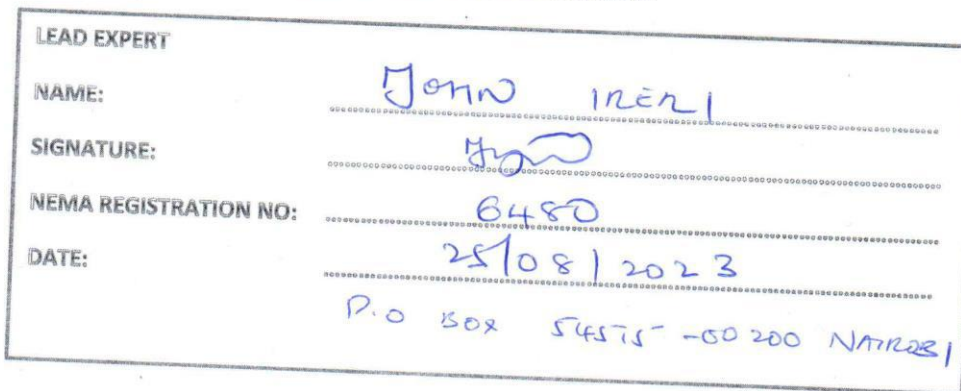 LEAD EXPERT
NAME: John IRERI
SIGNATURE:
NEMA REGISTRATION NO: 6480
DATE: 25/08/2023
P.O BOX 54575-00200 NAIROBI